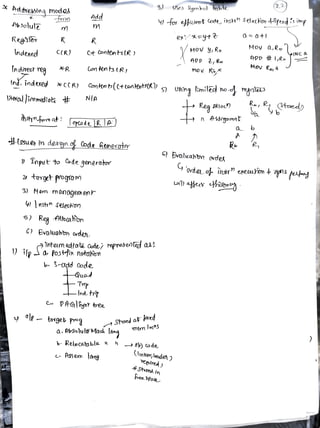 * Addressing modes
-form Add
Absolute M M
Register R R
Indexed C(R) C+ Contents(R)
Indirect reg *R Contents(R)
Ind. Indexed *C(R) Contents(C+contents(R))
Literal/immediate # N/A
format: opcode R A
# Issues in design of Code Generator
1) Input to Code generator
2) target program
3) Mem management
4) Instn selection
5) Reg Allocation
6) Evaluation order.
Intermediate code; represented as:
1) i/p a. Postfix notation
b. 3-add code
Quad
Trip
Ind. trip
c. DAG/
2) o/p - target prog
a. Absolute Mach lang → Stored at fixed mem locns
b. Relocatable " " → obj code
(linker, loader required)
c. Assem lang
3) Uses Symbol table
4) For efficient code, instn selection & speed is imp
ex: x=y+z a=a+1
MOV y, R0 MOV a, R0
ADD z, R0 ADD #1, R0
MOV R0, x MOV R0, a
INC a
5) Using limited no. of registers
Reg
Assignment
a b
R0 R1
6) Evaluation order
order of instn execution &
will affect efficiency